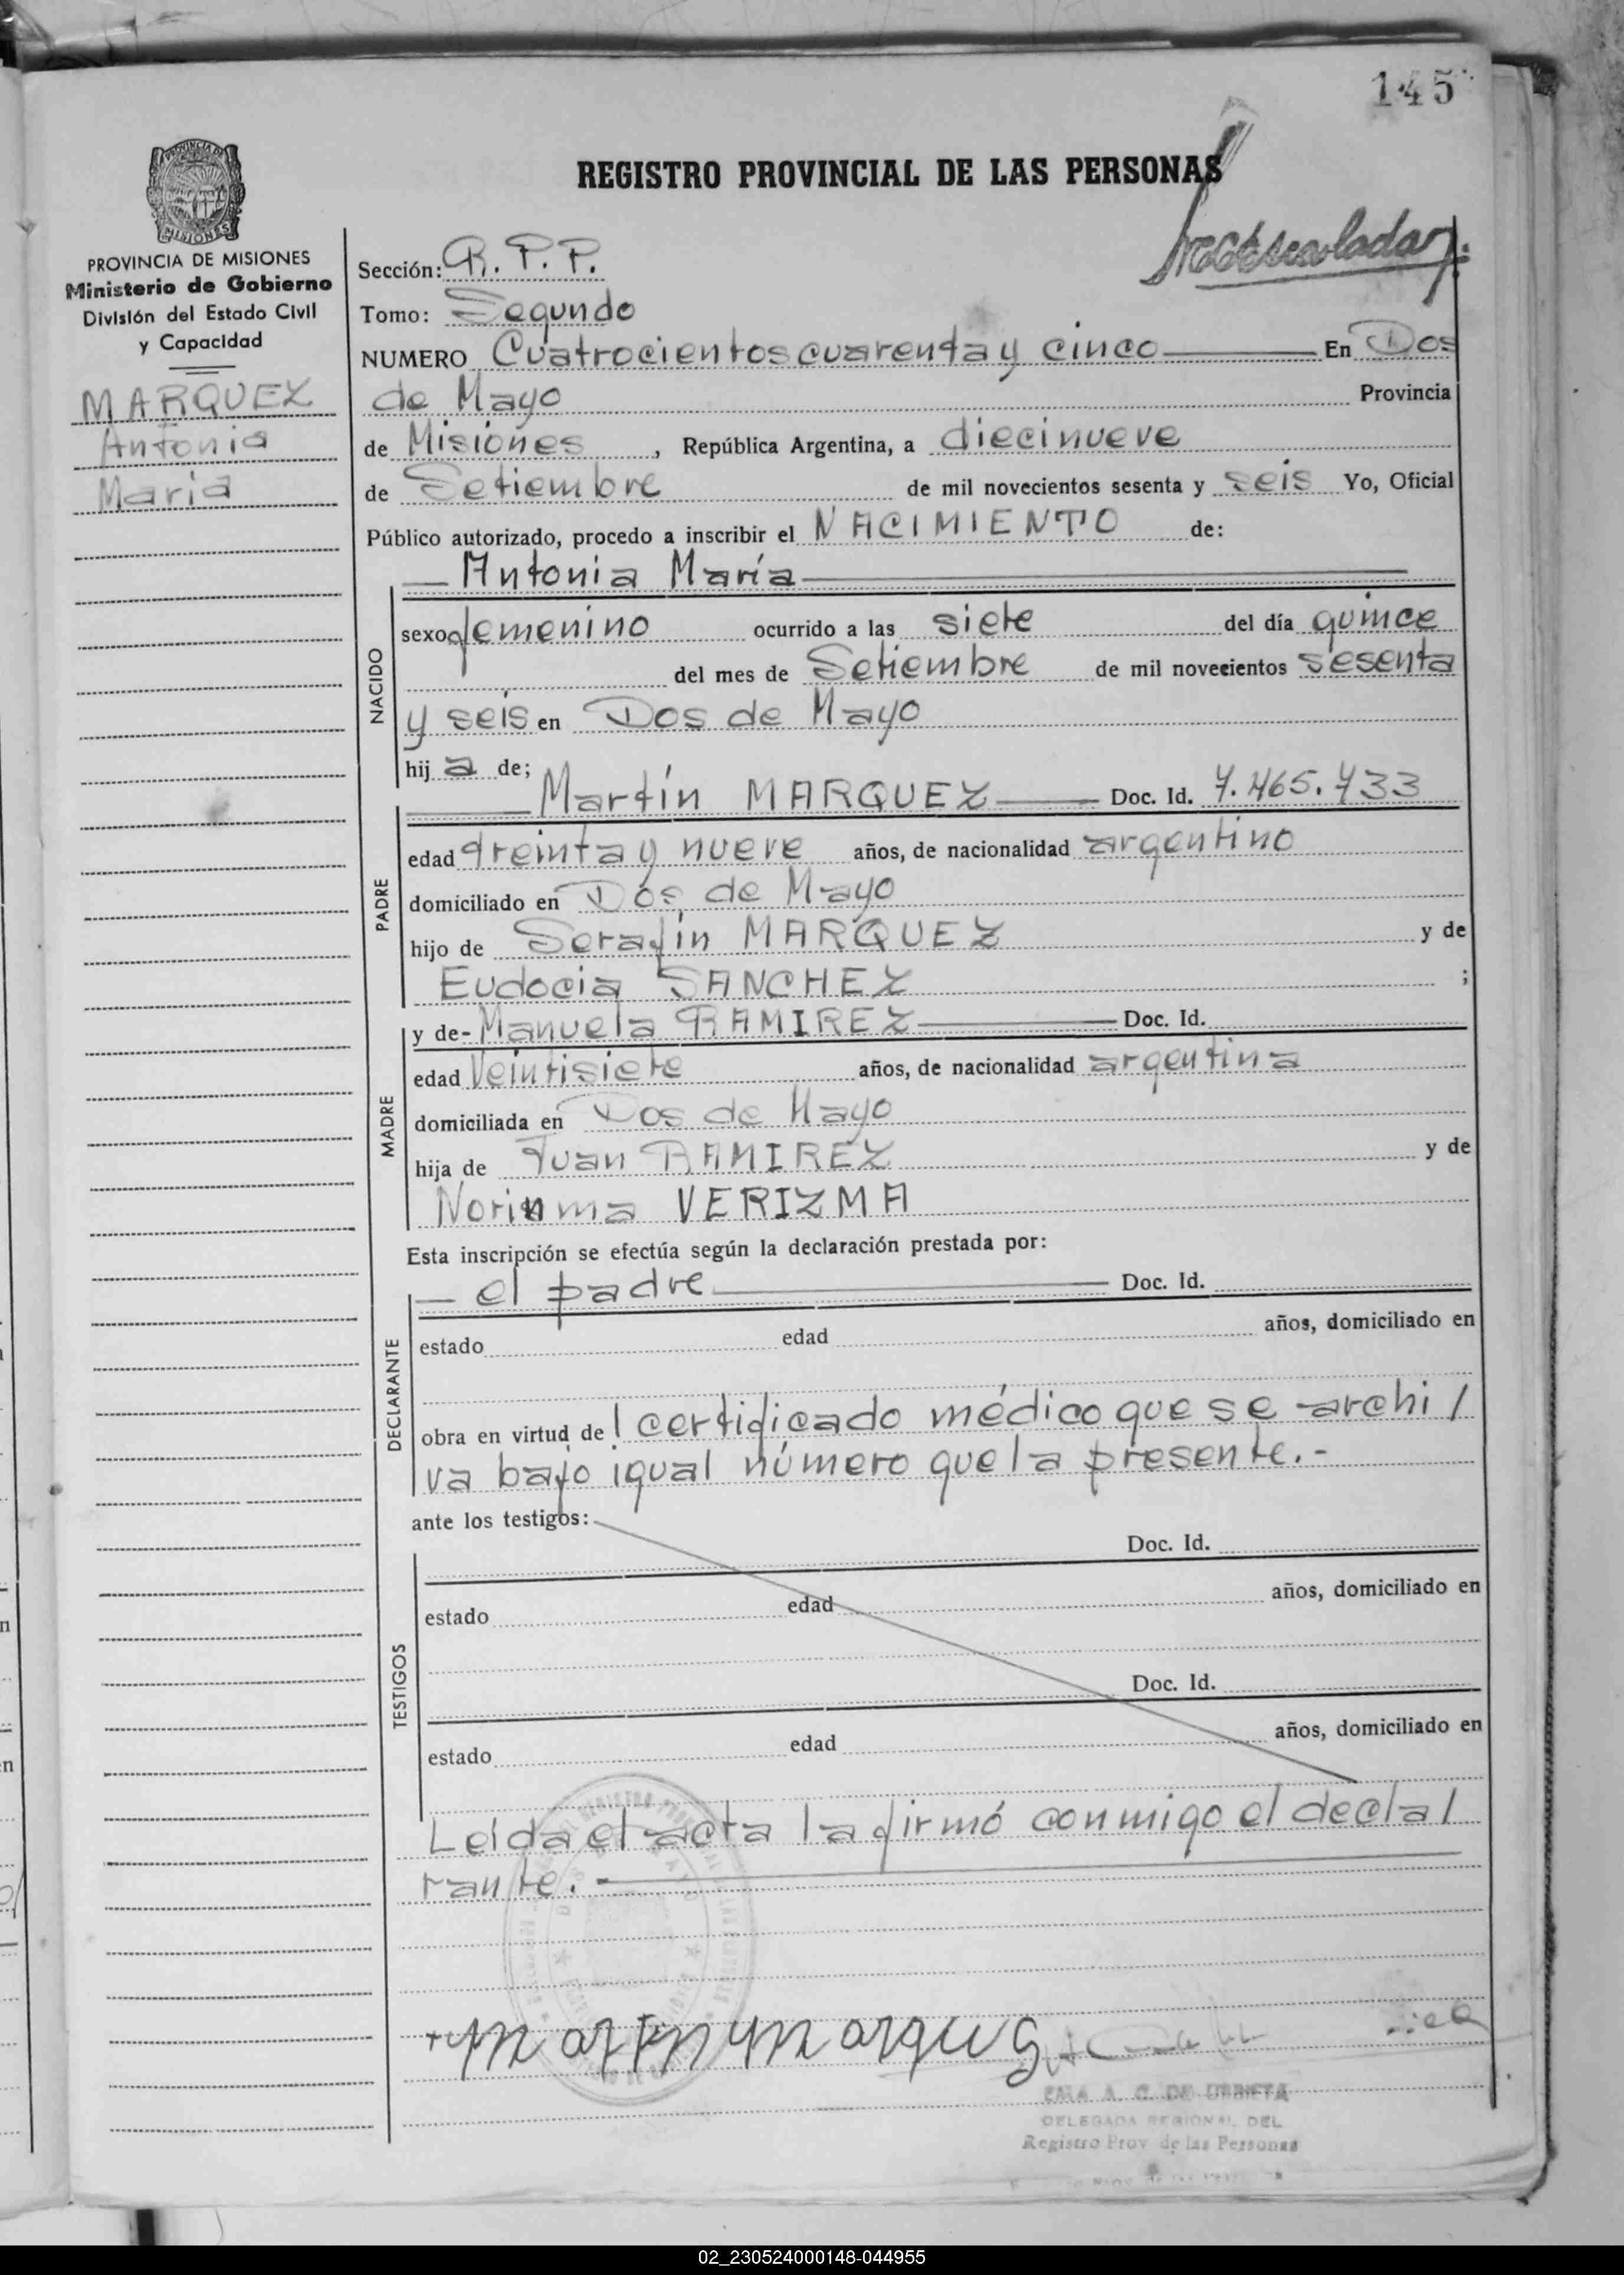 145
REGISTRO PROVINCIAL DE LAS PERSONAS
PROVINCIA DE MISIONES
MISIONES
PROVINCIA DE MISIONES
Ministerio de Gobierno
División del Estado Civil
y Capacidad
MARQUEZ
Antonia
Maria
Sección: R. P. P.
Tomo: Segundo
NUMERO Cuatrocientos cuarenta y cinco En Dos
de Mayo Provincia
de Misiones, República Argentina, a diecinueve
de Setiembre de mil novecientos sesenta y seis Yo, Oficial
Público autorizado, procedo a inscribir el NACIMIENTO de:
Antonia María
NACIDO
sexo femenino ocurrido a las siete del día quince
del mes de Setiembre de mil novecientos sesenta
y seis en Dos de Mayo
hij a de;
PADRE
Martín MARQUEZ Doc. Id. 7.465.733
edad treinta y nueve años, de nacionalidad argentino
domiciliado en Dos de Mayo
hijo de Serafín MARQUEZ y de
Eudocia SANCHEZ ;
MADRE
y de- Manuela RAMIREZ Doc. Id.
edad Veintisiete años, de nacionalidad argentina
domiciliada en Dos de Mayo
hija de Juan RAMIREZ y de
VERIZMA
Esta inscripción se efectúa según la declaración prestada por:
DECLARANTE
el padre Doc. Id.
estado edad años, domiciliado en
obra en virtud de l certificado médico que se archi /
va bajo igual número que la presente.-
ante los testigos:
TESTIGOS
Doc. Id.
estado edad años, domiciliado en
Doc. Id.
estado edad años, domiciliado en
Leída el acta la firmó conmigo el decla/
rante.-
DELEGADA REGIONAL DEL
Registro Prov de las Personas
02_230524000148-044955